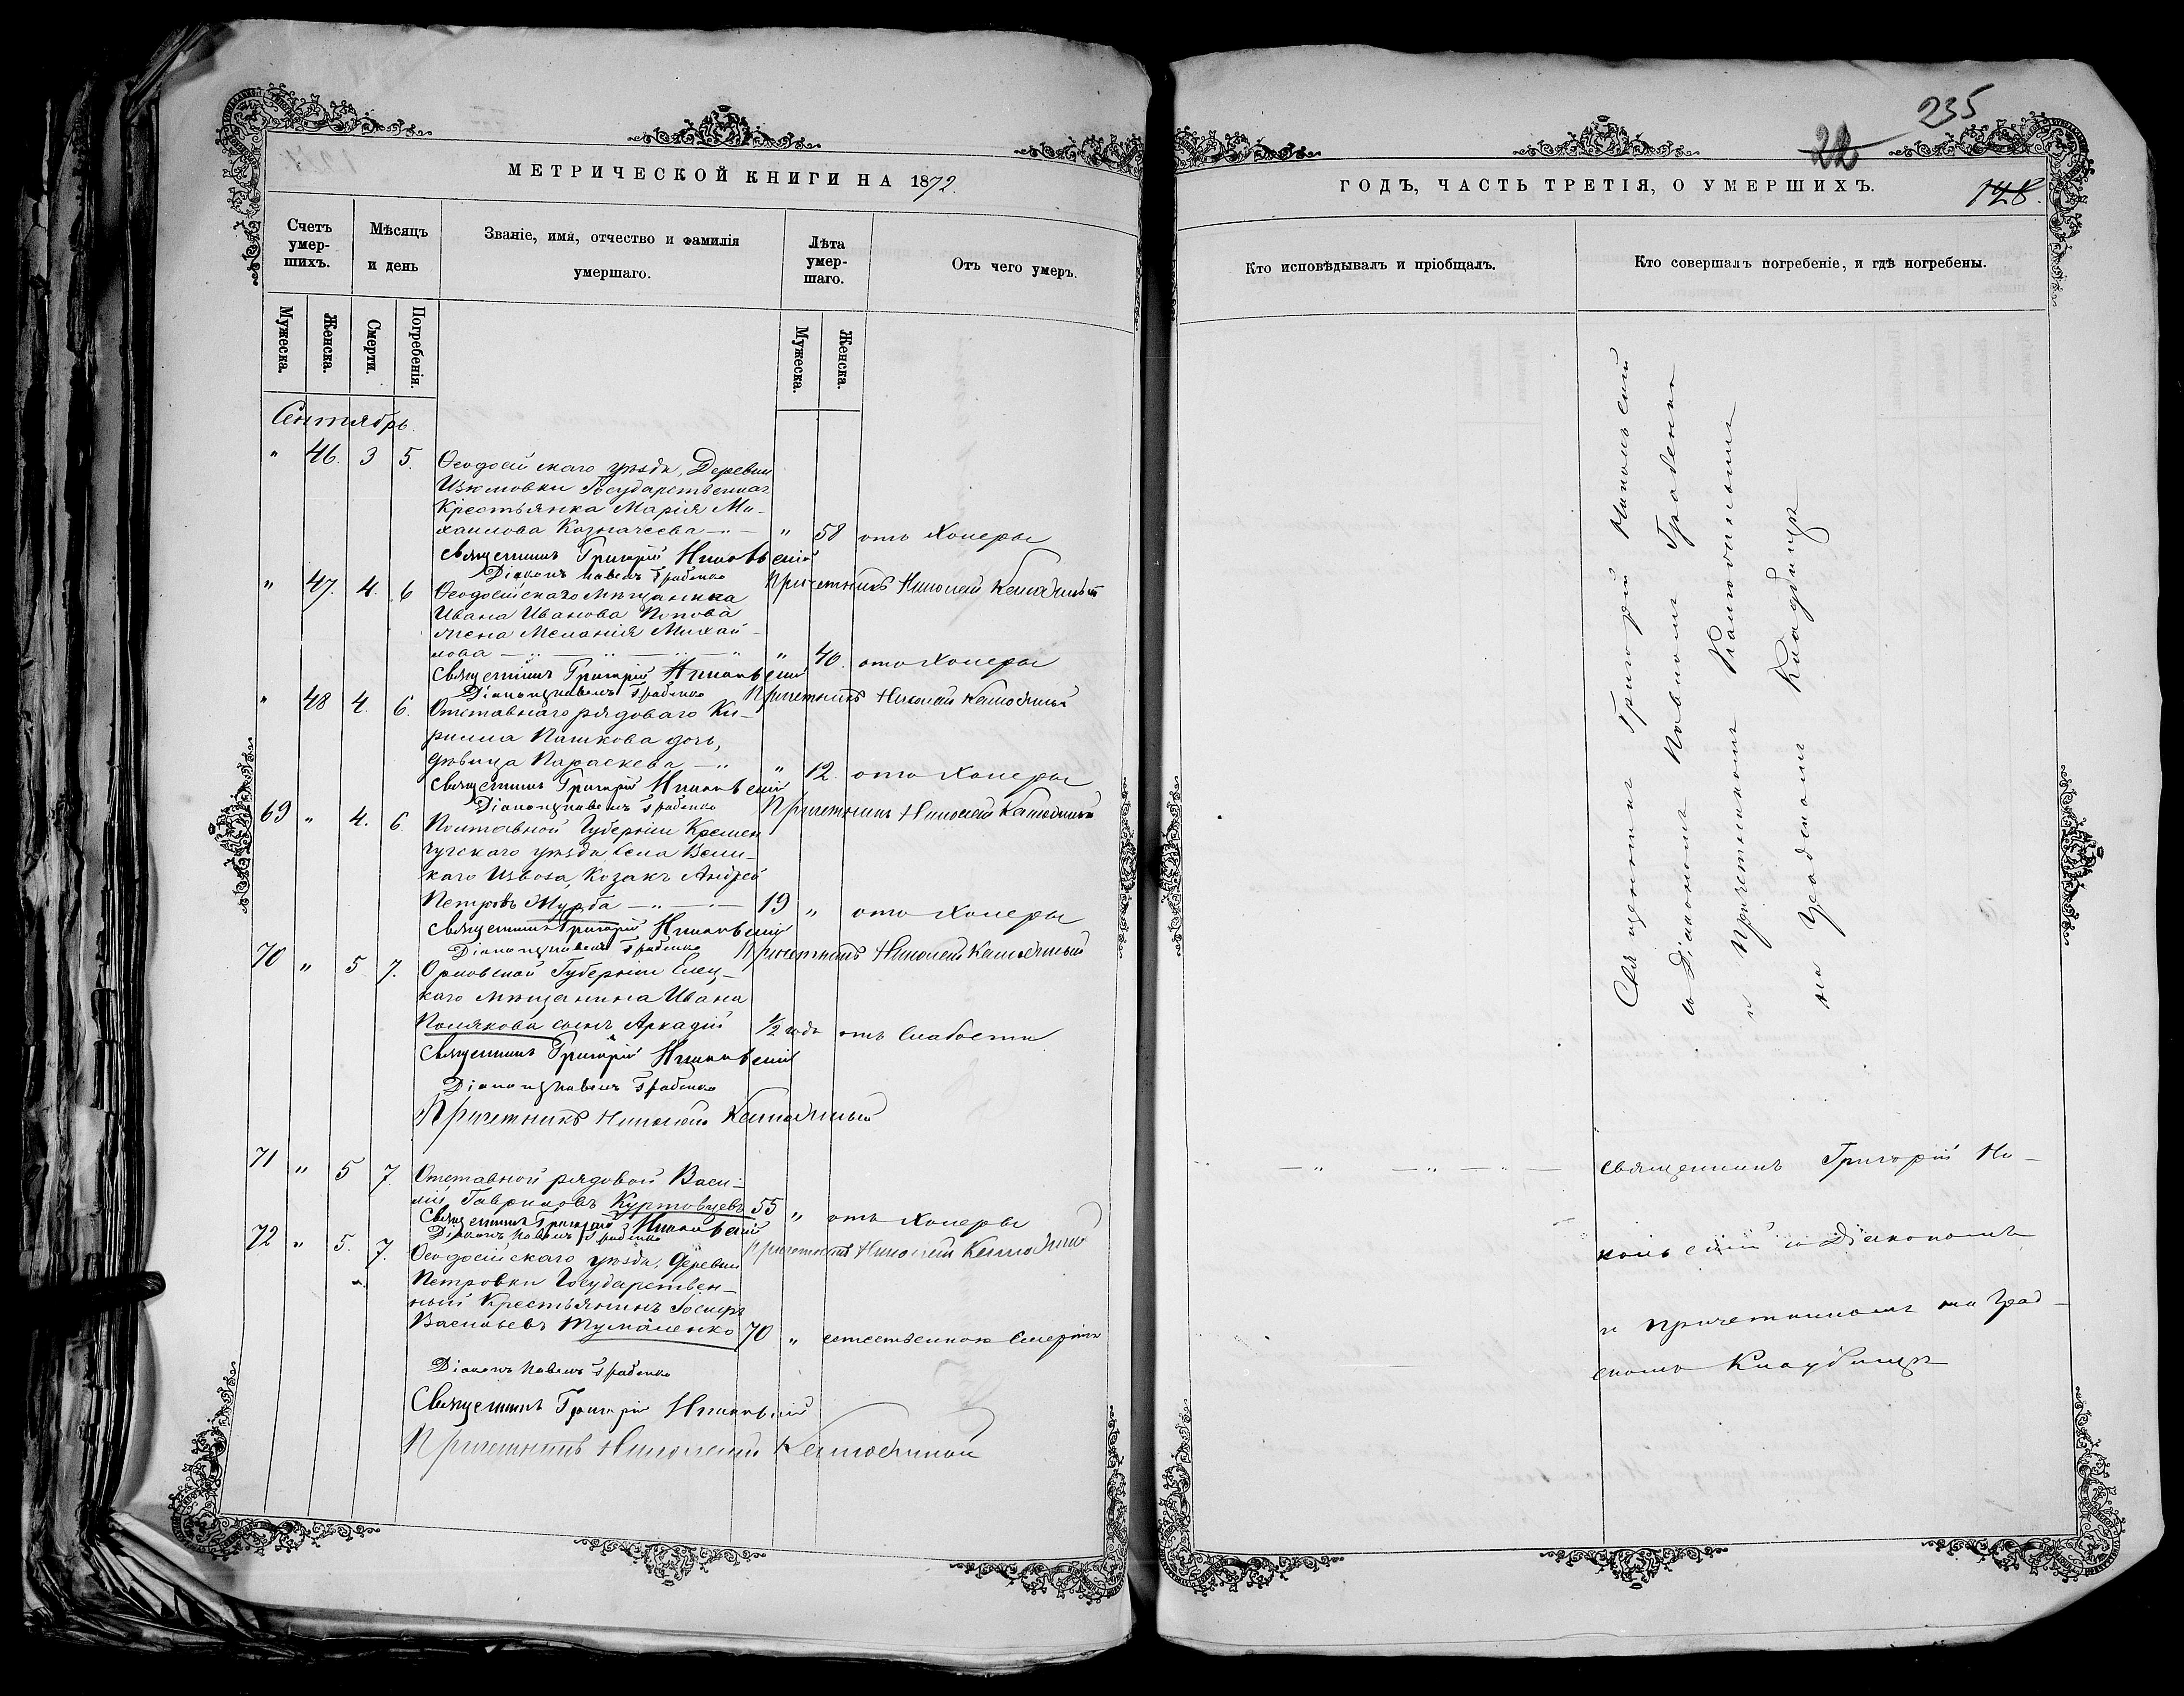 МЕТРИЧЕСКОЙ КНИГИ НА 1872.
Счетъ умер-шихъ.
Мѣсяцъ и день
Званіе, имя, отчество и фамилія умершаго.
Лѣта умер-шаго.
Отъ чего умеръ.
Мужеска.
Женска.
Смерти.
Погребенія.
Мужеска.
Женска.
Сентябрь.
" 46. 3 5. Ѳеодосійскаго уѣзда, Деревни
Изюмовки Государственная
Крестьянка Марія Ми-
хаилова Казначеева " 58 отъ Холеры
Священникъ Григорій Никольскій
Діаконъ Павелъ Грабенко
Причетникъ Николай
" 47. 4. 6 Ѳеодосійскаго Мѣщанина
Ивана Иванова Попова
жена Меланія Михай-
лова " 40. отъ Холеры
Священникъ Григорій Никольскій
Діаконъ Павелъ Грабенко
Причетникъ Николай
" 48 4. 6. Отставнаго рядоваго Ки-
рилла Пашкова дочь,
дѣвица Параскева " 12. отъ Холеры
Священникъ Григорій Никольскій
Діаконъ Павелъ Грабенко
Причетникъ Николай
69 " 4. 6. Полтавской Губерніи Кремен
чугскаго уѣзда Села Вели-
каго Козакъ Андрей
Петровъ 19 " отъ Холеры
Священникъ Григорій Никольскій
Діаконъ Павелъ Грабенко
Причетникъ Николай
70 " 5 7. Орловской Губерніи Елец-
каго мѣщанина Ивана
Полякова сынъ Аркадій 1/2 года отъ Слабости
Священникъ Григорій Никольскій
Діаконъ Павелъ Грабенко
Причетникъ Николай
71 " 5 7. Отставной рядовой Васи-
лій Гавриловъ 55 " отъ Холеры
Священникъ Григорій Никольскій
Діаконъ Павелъ Грабенко
Причетникъ Николай
72 " 5. 7. Ѳеодосійскаго уѣзда, Деревни
Петровки Государствен-
ный Крестьянинъ
Васильевъ Тумаленко 70 " естественною Смертію
Діаконъ Павелъ Грабенко
Священникъ Григорій Никольскій
Причетникъ Николай
235
22
128.
ГОДЪ, ЧАСТЬ ТРЕТІЯ, О УМЕРШИХЪ.
Кто исповѣдывалъ и пріобщалъ.
Кто совершалъ погребеніе, и гдѣ погребены.
Священникъ Григорій Никольскій
съ Діакономъ Павломъ Грабенко
и Причетникомъ
на Градскомъ Кладбищѣ
Священникъ Григорій Ни-
кольскій съ Діакономъ
и Причетникомъ на Град-
скомъ Кладбищѣ